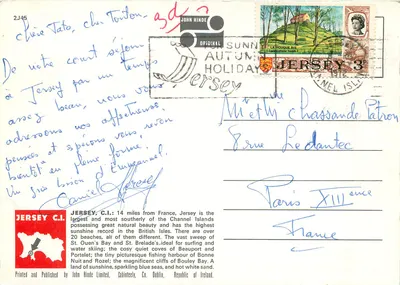 2J45
JOHN HINDE
ORIGINAL
SUNNY
AUTUMN
HOLIDAYS
Jersey
JERSEY 3
Chère Tato, cher Tonton,
De notre court séjour
à Jersey par un temps
assez beau, nous vous
adressons nos affectueuses
pensées et espérons vous revoir
bientôt en pleine forme.
Un gros bisou d'Emmanuel.
8 rue Ledantec
Paris XIII ème
France
JERSEY C.I.
JERSEY, C.I.: 14 miles from France, Jersey is the
largest and most southerly of the Channel Islands
possessing great natural beauty and has the highest
sunshine record in the British Isles. There are over
20 beaches, all of them different. The vast sweep of
St. Ouen's Bay and St. Brelade's, ideal for surfing and
water skiing; the cosy quiet coves of Beauport and
Portelet; the tiny picturesque fishing harbour of Bonne
Nuit and Rozel; the magnificent cliffs of Bouley Bay. A
land of sunshine, sparkling blue seas, and hot white sand.
Printed and Published by John Hinde Limited, Cabinteely, Co. Dublin, Republic of Ireland.